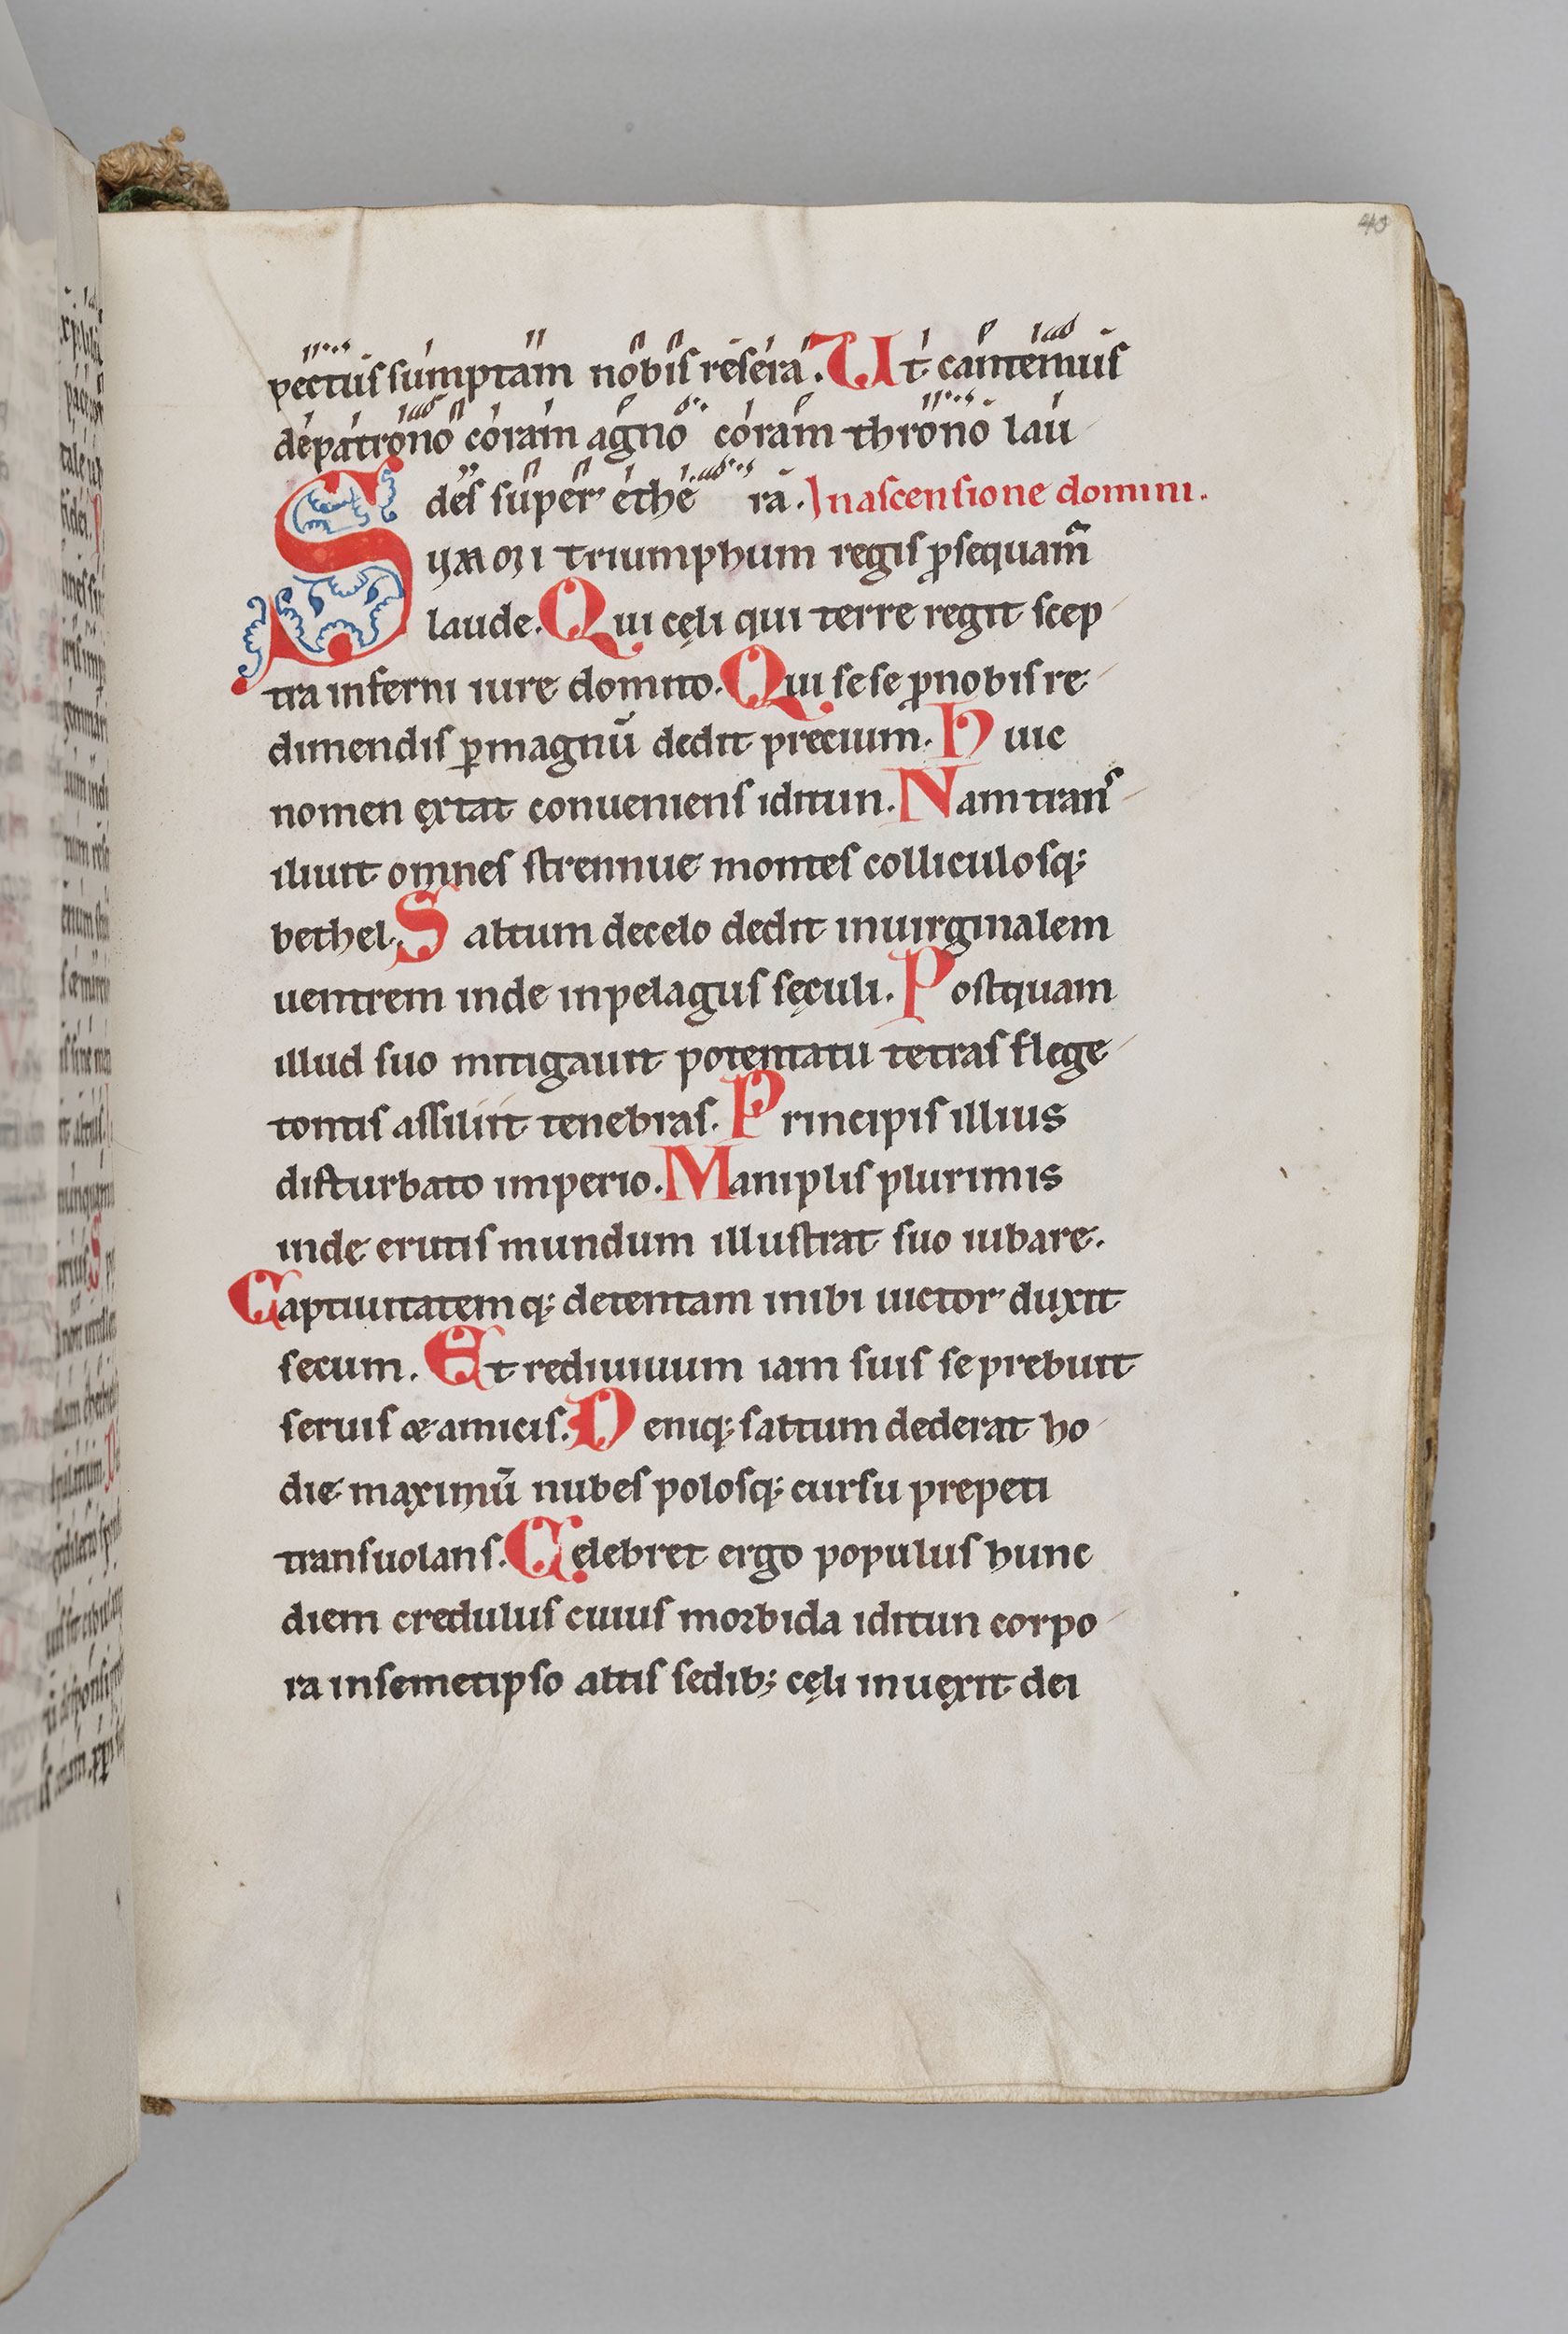 40
pectus sumptam nobis resera. Ut cantemus
depatrono coram agno coram throno lau
des super ethe ra. Inascensione domini.
Summi triumphum regis ꝓsequam̃
laude. Qui cęli qui terre regit scep
tra inferni iure domito. Qui sese ꝓnobis re
dimendis ꝑmagnū dedit precium. Huic
nomen extat conueniens iditun. Nam trans
iliuit omnes strennue montes colliculosq;
bethel. Saltum decelo dedit inuirginalem
uentrem inde inpelagus sęculi. Postquam
illud suo mitigauit potentatu tetras flege
tontis assiliit tenebras. Principis illius
disturbato imperio. Maniplis plurimis
inde erutis mundum illustrat suo iubare.
Captiuitatemq; detentam inibi uictor duxit
secum. Et rediuiuum iam suis se prebuit
seruis & amicis. Deniq; saltum dederat ho
die maximū nubes polosq; cursu prepeti
transuolans. Celebret ergo populus hunc
diem credulus cuius morbida iditun corpo
ra insemetipso altis sedib; cęli inuexit dei